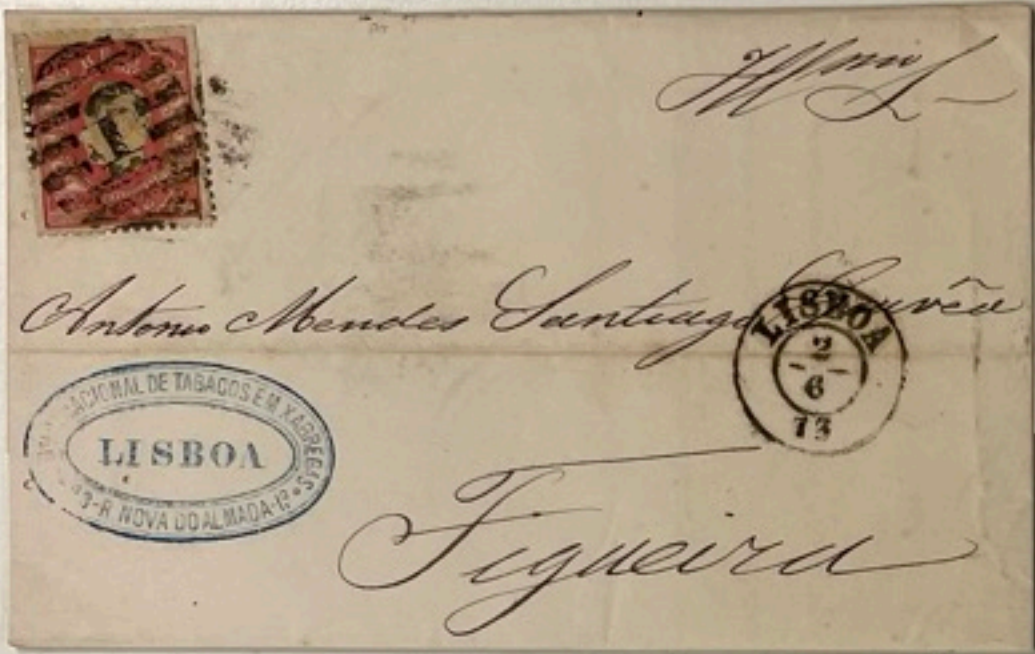 Illmo Sr
Antonio Mendes Santiago Gouvêa
LISBOA
2
6
73
NACIONAL DE TABACOS EM XABREGAS
LISBOA
R NOVA DO ALMADA-1º
Figueira